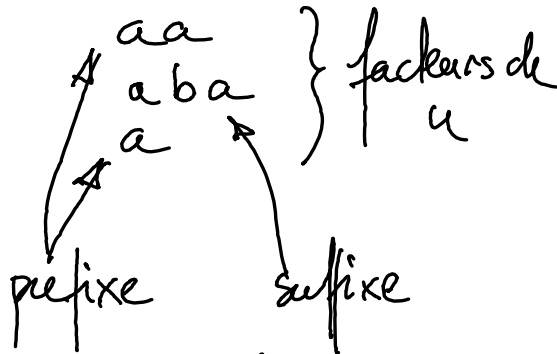 aa
aba
a
facteurs de
u
prefixe suffixe